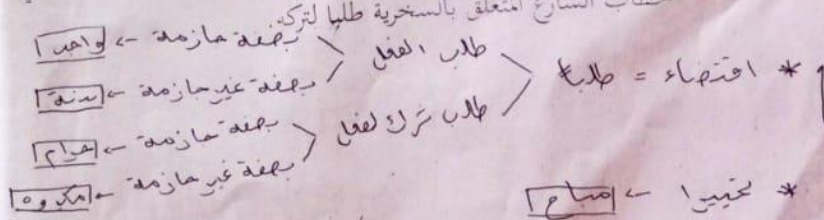 خطاب الشارع المتعلق بالسخرية طلبا لتركه
* اقتضاء = طلبا
طلب الفعل
بصفة جازمة -> واجب
بصفة غير جازمة -> سنة
طلب ترك لفعل
بصفة جازمة -> حرام
بصفة غير جازمة -> مكروه
* تخييرا -> مباح